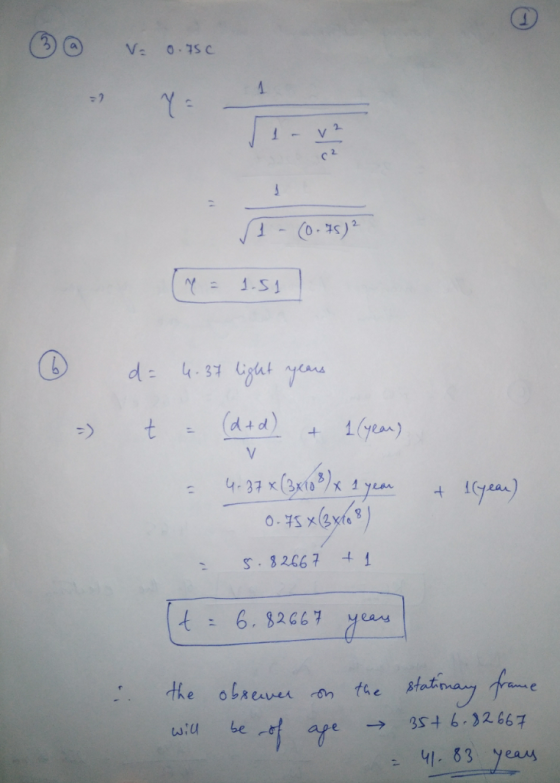 1
3 a V = 0.75C
=> γ = 1 / √(1 - v²/c²)
= 1 / √(1 - (0.75)²)
γ = 1.51
b d = 4.37 light years
=> t = (d+d)/V + 1(year)
= 4.37 x (3x10⁸) x 1 year / 0.75 x (3x10⁸) + 1(year)
= 5.82667 + 1
t = 6.82667 years
∴ the observer on the stationary frame
will be of age → 35 + 6.82667
= 41.83 years